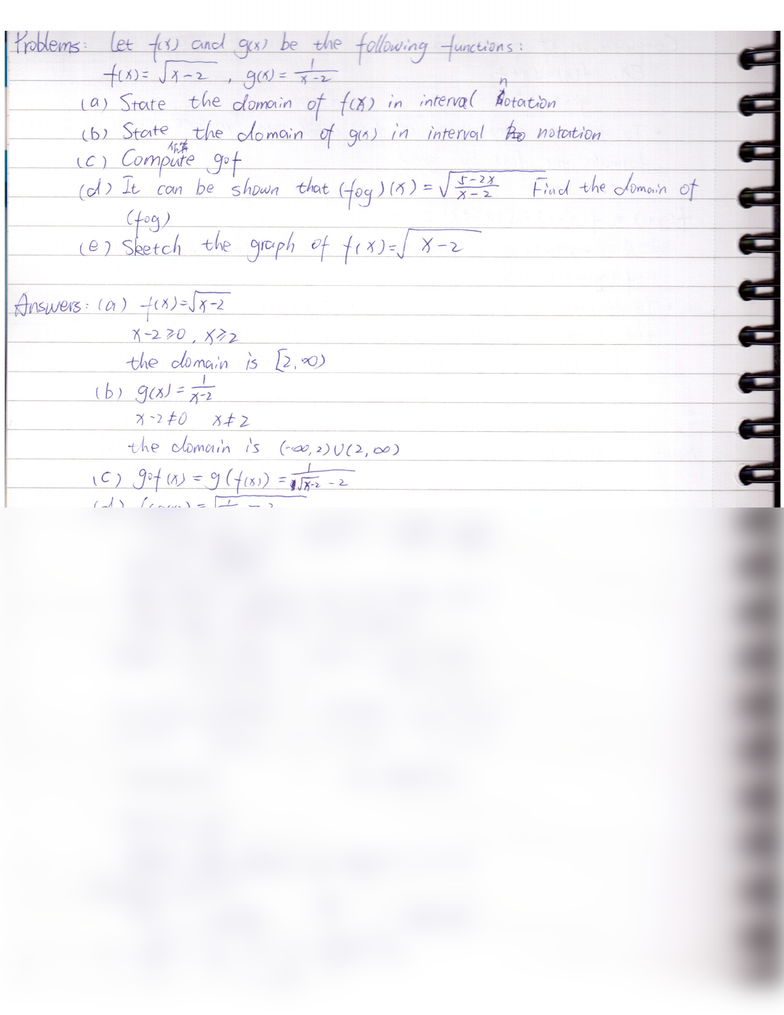 Problems: Let f(x) and g(x) be the following functions:
f(x)=√(x-2), g(x)=1/(x-2)
n
(a) State the domain of f(x) in interval notation
(b) State the domain of g(x) in interval notation
(c) Compute gof
(d) It can be shown that (fog)(x)=√((5-2x)/(x-2)) Find the domain of
(fog)
(e) Sketch the graph of f(x)=√(x-2)
Answers: (a) f(x)=√(x-2)
x-2≥0, x≥2
the domain is [2,∞)
(b) g(x)=1/(x-2)
x-2≠0 x≠2
the domain is (-∞,2)∪(2,∞)
(c) gof(x)=g(f(x))=1/(√(x-2)-2)